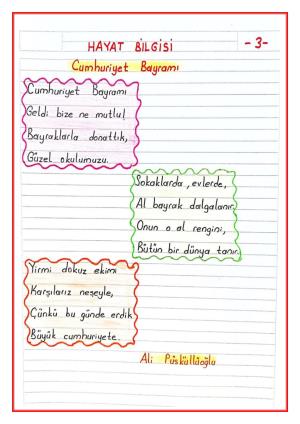 HAYAT BİLGİSİ
-3-
Cumhuriyet Bayramı
Cumhuriyet Bayramı
Geldi bize ne mutlu!
Bayraklarla donattık,
Güzel okulumuzu.
Sokaklarda, evlerde,
Al bayrak dalgalanır.
Onun o al rengini,
Bütün bir dünya tanır.
Yirmi dokuz ekimi
Karşılarız neşeyle,
Çünkü bu günde erdik
Büyük cumhuriyete.
Ali Püsküllüoğlu